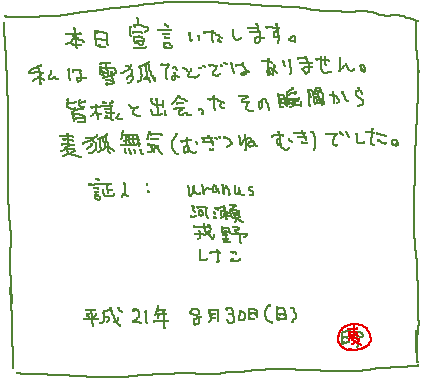 本日宣言いたします。
私は雪狐などではありません。
皆様と出会ったその瞬間から
麦狐無気(むぎつね むき)でした。
証人: uranus
河瀬
戎野
しさこ
平成21年 8月30日(日)